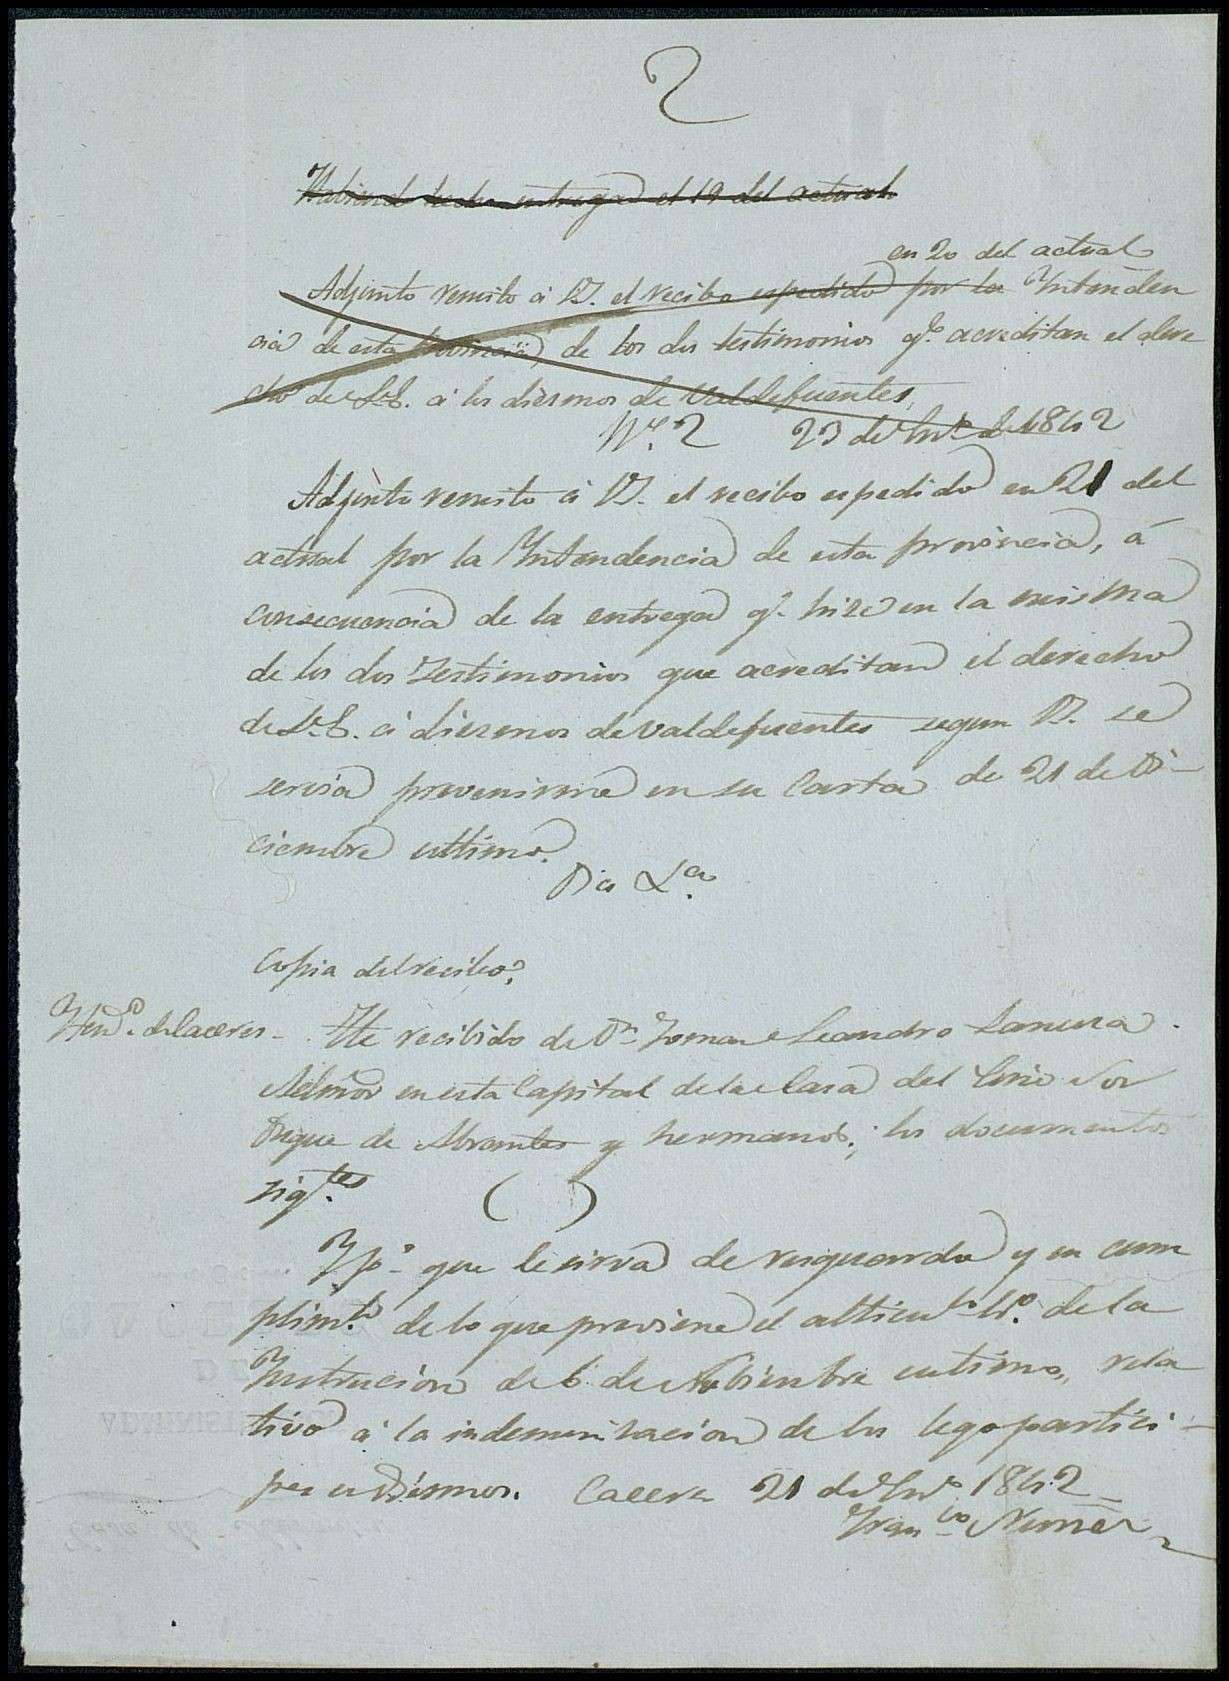 2
Habiendo hecho entrega el 19 del actual
en 20 del actual
Adjunto remito á V. el recibo espedido por la Yntenden
cia de esta Provincia, de los dos testimonios q.e acreditan el dere
cho de S.E. á los diezmos de Valdefuentes,
N.º 2 23 de En.º de 1842
Adjunto remito á V. el recibo espedido en 21 del
actual por la Yntendencia de esta provincia, á
consecuencia de la entrega q.e hize en la misma
de los dos testimonios que acreditan el derecho
de S.E. á diezmos de Valdefuentes segun V. se
servia prevenirme en su Carta de 21 de Di-
ciembre ultimo.
Dios &.a
Copia del recibo.
Ytend.a de Caceres - He recibido de D.n Tomas Leandro
Admor en esta Capital de la Casa del Exmo Sor
Duque de Abrantes y hermanos, los documentos
sig.tes ( )
Y p.a que le sirva de resguardo y en cum
plim.to de lo que previene el articulo de la
Ynstrucion de 6 de Nobienbre ultimo, rela
tivo á la indemnizacion de los lego partici-
pes en diesmos. Caceres 21 de En.º 1842
Fran.co Nuñez